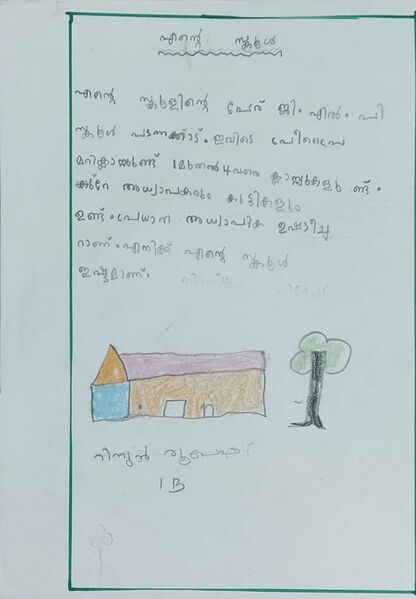 എന്റെ സ്കൂൾ
എന്റെ സ്കൂളിന്റെ പേര് ജി. എൽ. പി
സ്കൂൾ പടന്നക്കാട്. ഇവിടെ പ്രീപ്രൈ
മറിക്ലാസ്സുണ്ട് 1മുതൽ 4വരെ ക്ലാസ്സുകളു ണ്ട്.
കുറേ അധ്യാപകരും കുട്ടികളും
ഉണ്ട്. പ്രധാന അധ്യാപിക ഉഷടീച്ച
റാണ്. എനിക്ക് എന്റെ സ്കൂൾ
ഇഷ്ടമാണ്.
1 B